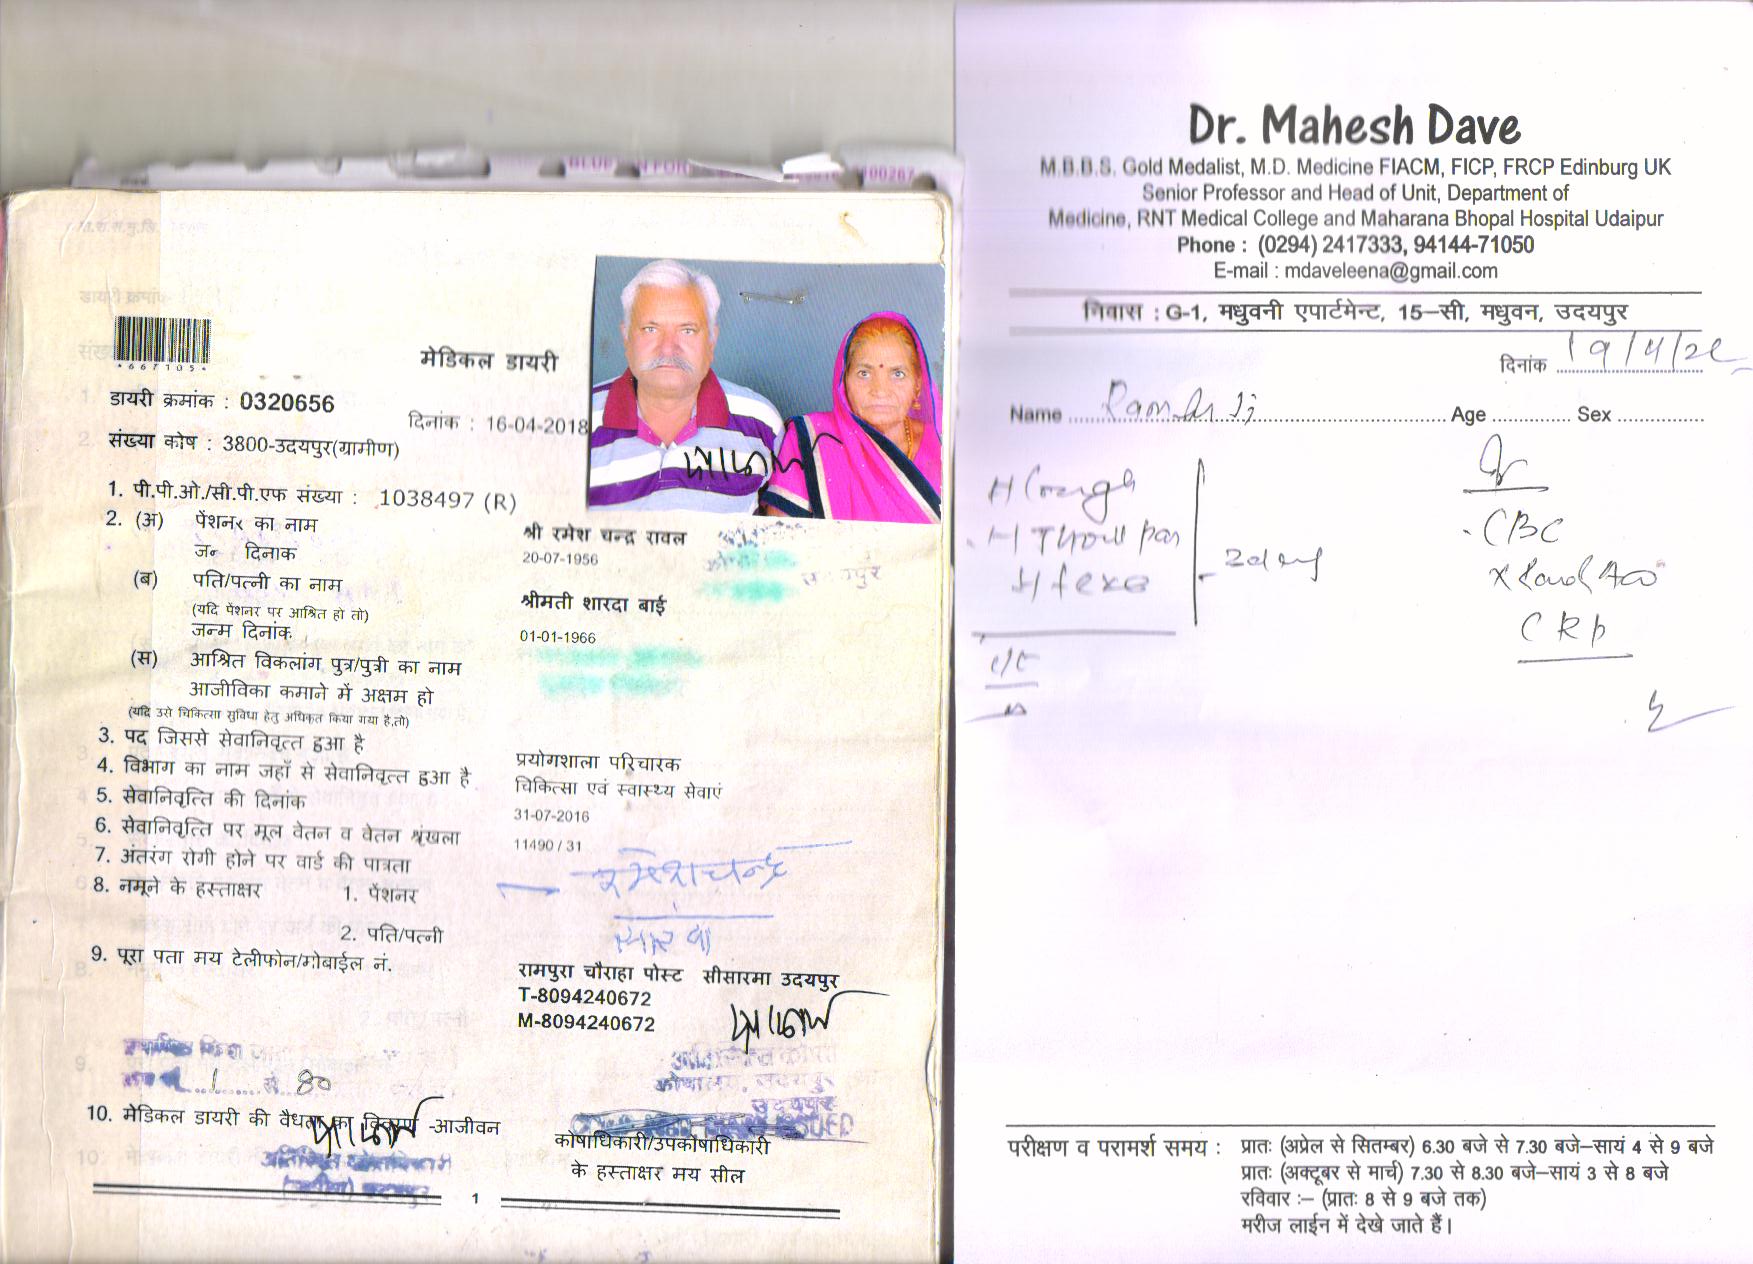 *667105*
मेडिकल डायरी
डायरी क्रमांक : 0320656
दिनांक : 16-04-2018
संख्या कोष : 3800-उदयपुर(ग्रामीण)
1. पी.पी.ओ./सी.पी.एफ संख्या : 1038497 (R)
2. (अ) पेंशनर का नाम श्री रमेश चन्द्र रावल
जन्म दिनाक 20-07-1956
(ब) पति/पत्नी का नाम श्रीमती शारदा बाई
(यदि पेंशनर पर आश्रित हो तो)
जन्म दिनांक 01-01-1966
(स) आश्रित विकलांग पुत्र/पुत्री का नाम
आजीविका कमाने में अक्षम हो
(यदि उसे चिकित्सा सुविधा हेतु अधिकृत किया गया है,तो)
3. पद जिससे सेवानिवृत्त हुआ है प्रयोगशाला परिचारक
4. विभाग का नाम जहाँ से सेवानिवृत्त हुआ है चिकित्सा एवं स्वास्थ्य सेवाएं
5. सेवानिवृत्ति की दिनांक 31-07-2016
6. सेवानिवृत्ति पर मूल वेतन व वेतन श्रृंखला 11490 / 31
7. अंतरंग रोगी होने पर वार्ड की पात्रता
8. नमूने के हस्ताक्षर 1. पेंशनर रमेशचन्द्र
2. पति/पत्नी
9. पूरा पता मय टेलीफोन/मोबाईल नं. रामपुरा चौराहा पोस्ट सीसारमा उदयपुर
T-8094240672
M-8094240672
1 से 80
10. मेडिकल डायरी की वैधता का विवरण -आजीवन
कोषाधिकारी/उपकोषाधिकारी
के हस्ताक्षर मय सील
1
Dr. Mahesh Dave
M.B.B.S. Gold Medalist, M.D. Medicine FIACM, FICP, FRCP Edinburg UK
Senior Professor and Head of Unit, Department of
Medicine, RNT Medical College and Maharana Bhopal Hospital Udaipur
Phone : (0294) 2417333, 94144-71050
E-mail : mdaveleena@gmail.com
निवास : G-1, मधुवनी एपार्टमेन्ट, 15–सी, मधुवन, उदयपुर
दिनांक 19/4/22
Name Age Sex
H Cough
CBC
CRP
परीक्षण व परामर्श समय : प्रातः (अप्रेल से सितम्बर) 6.30 बजे से 7.30 बजे–सायं 4 से 9 बजे
प्रातः (अक्टूबर से मार्च) 7.30 से 8.30 बजे–सायं 3 से 8 बजे
रविवार :– (प्रातः 8 से 9 बजे तक)
मरीज लाईन में देखे जाते हैं।